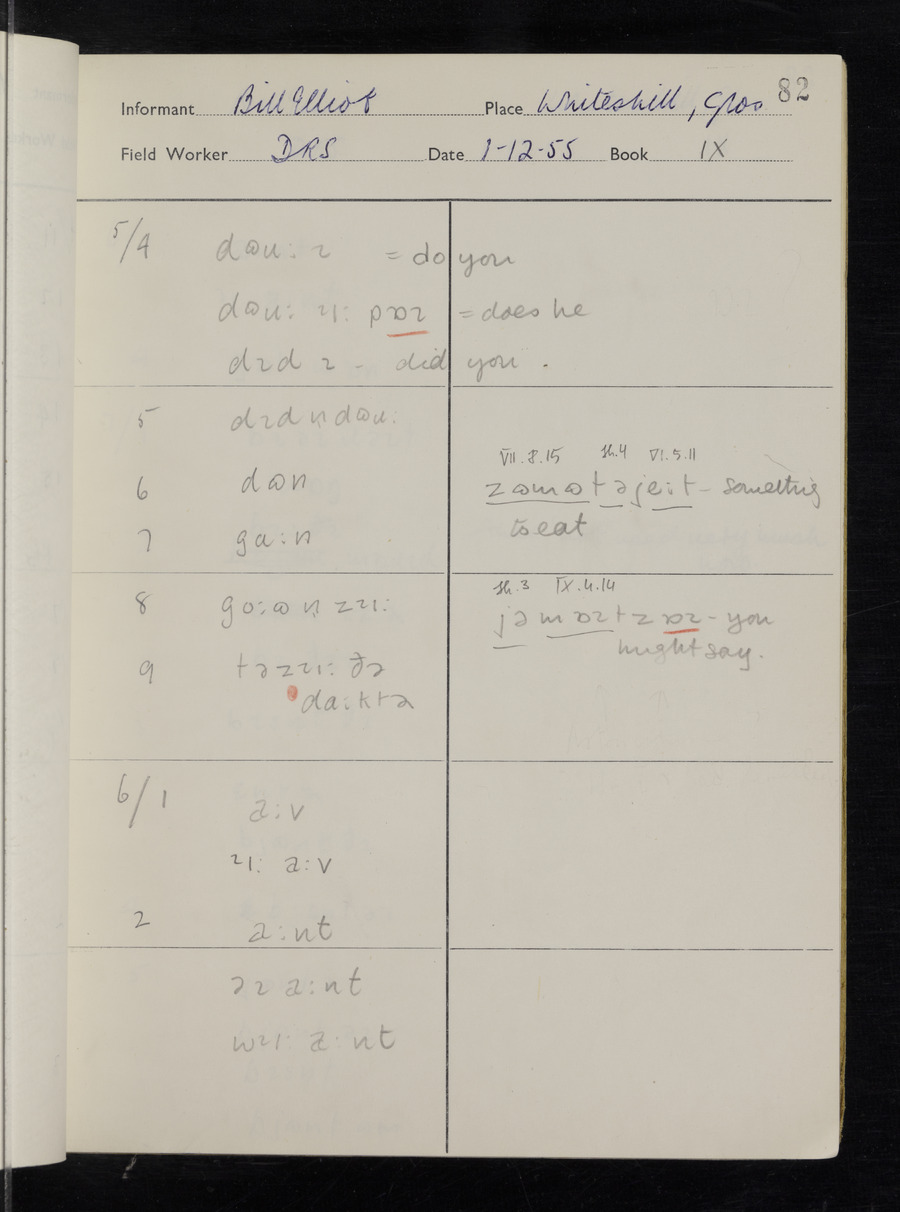 82
Informant Bill Elliot Place Whiteshill, Glos
Field Worker DRS Date 1-12-55 Book IX
5/4 dɷu: ɪ = do you
dɷu: ɪi: = does he
dɪd ɪ - did you.
5 dɪd n̩ dɷu:
6 dɷn
7 ga:n
VII.8.15 sh.4 VI.5.11
zɷmɷt ə je:t - something
to eat
8 go:ɷ n̩ zɪi:
9 tə zɪi: ðə
da:ktə
sh.3 IX.4.14
jə mɒɪt zɒɪ - you
might say.
6/1 a:v
ɪi: a:v
2 a:nt
əɪ a:nt
wɪi: a:nt